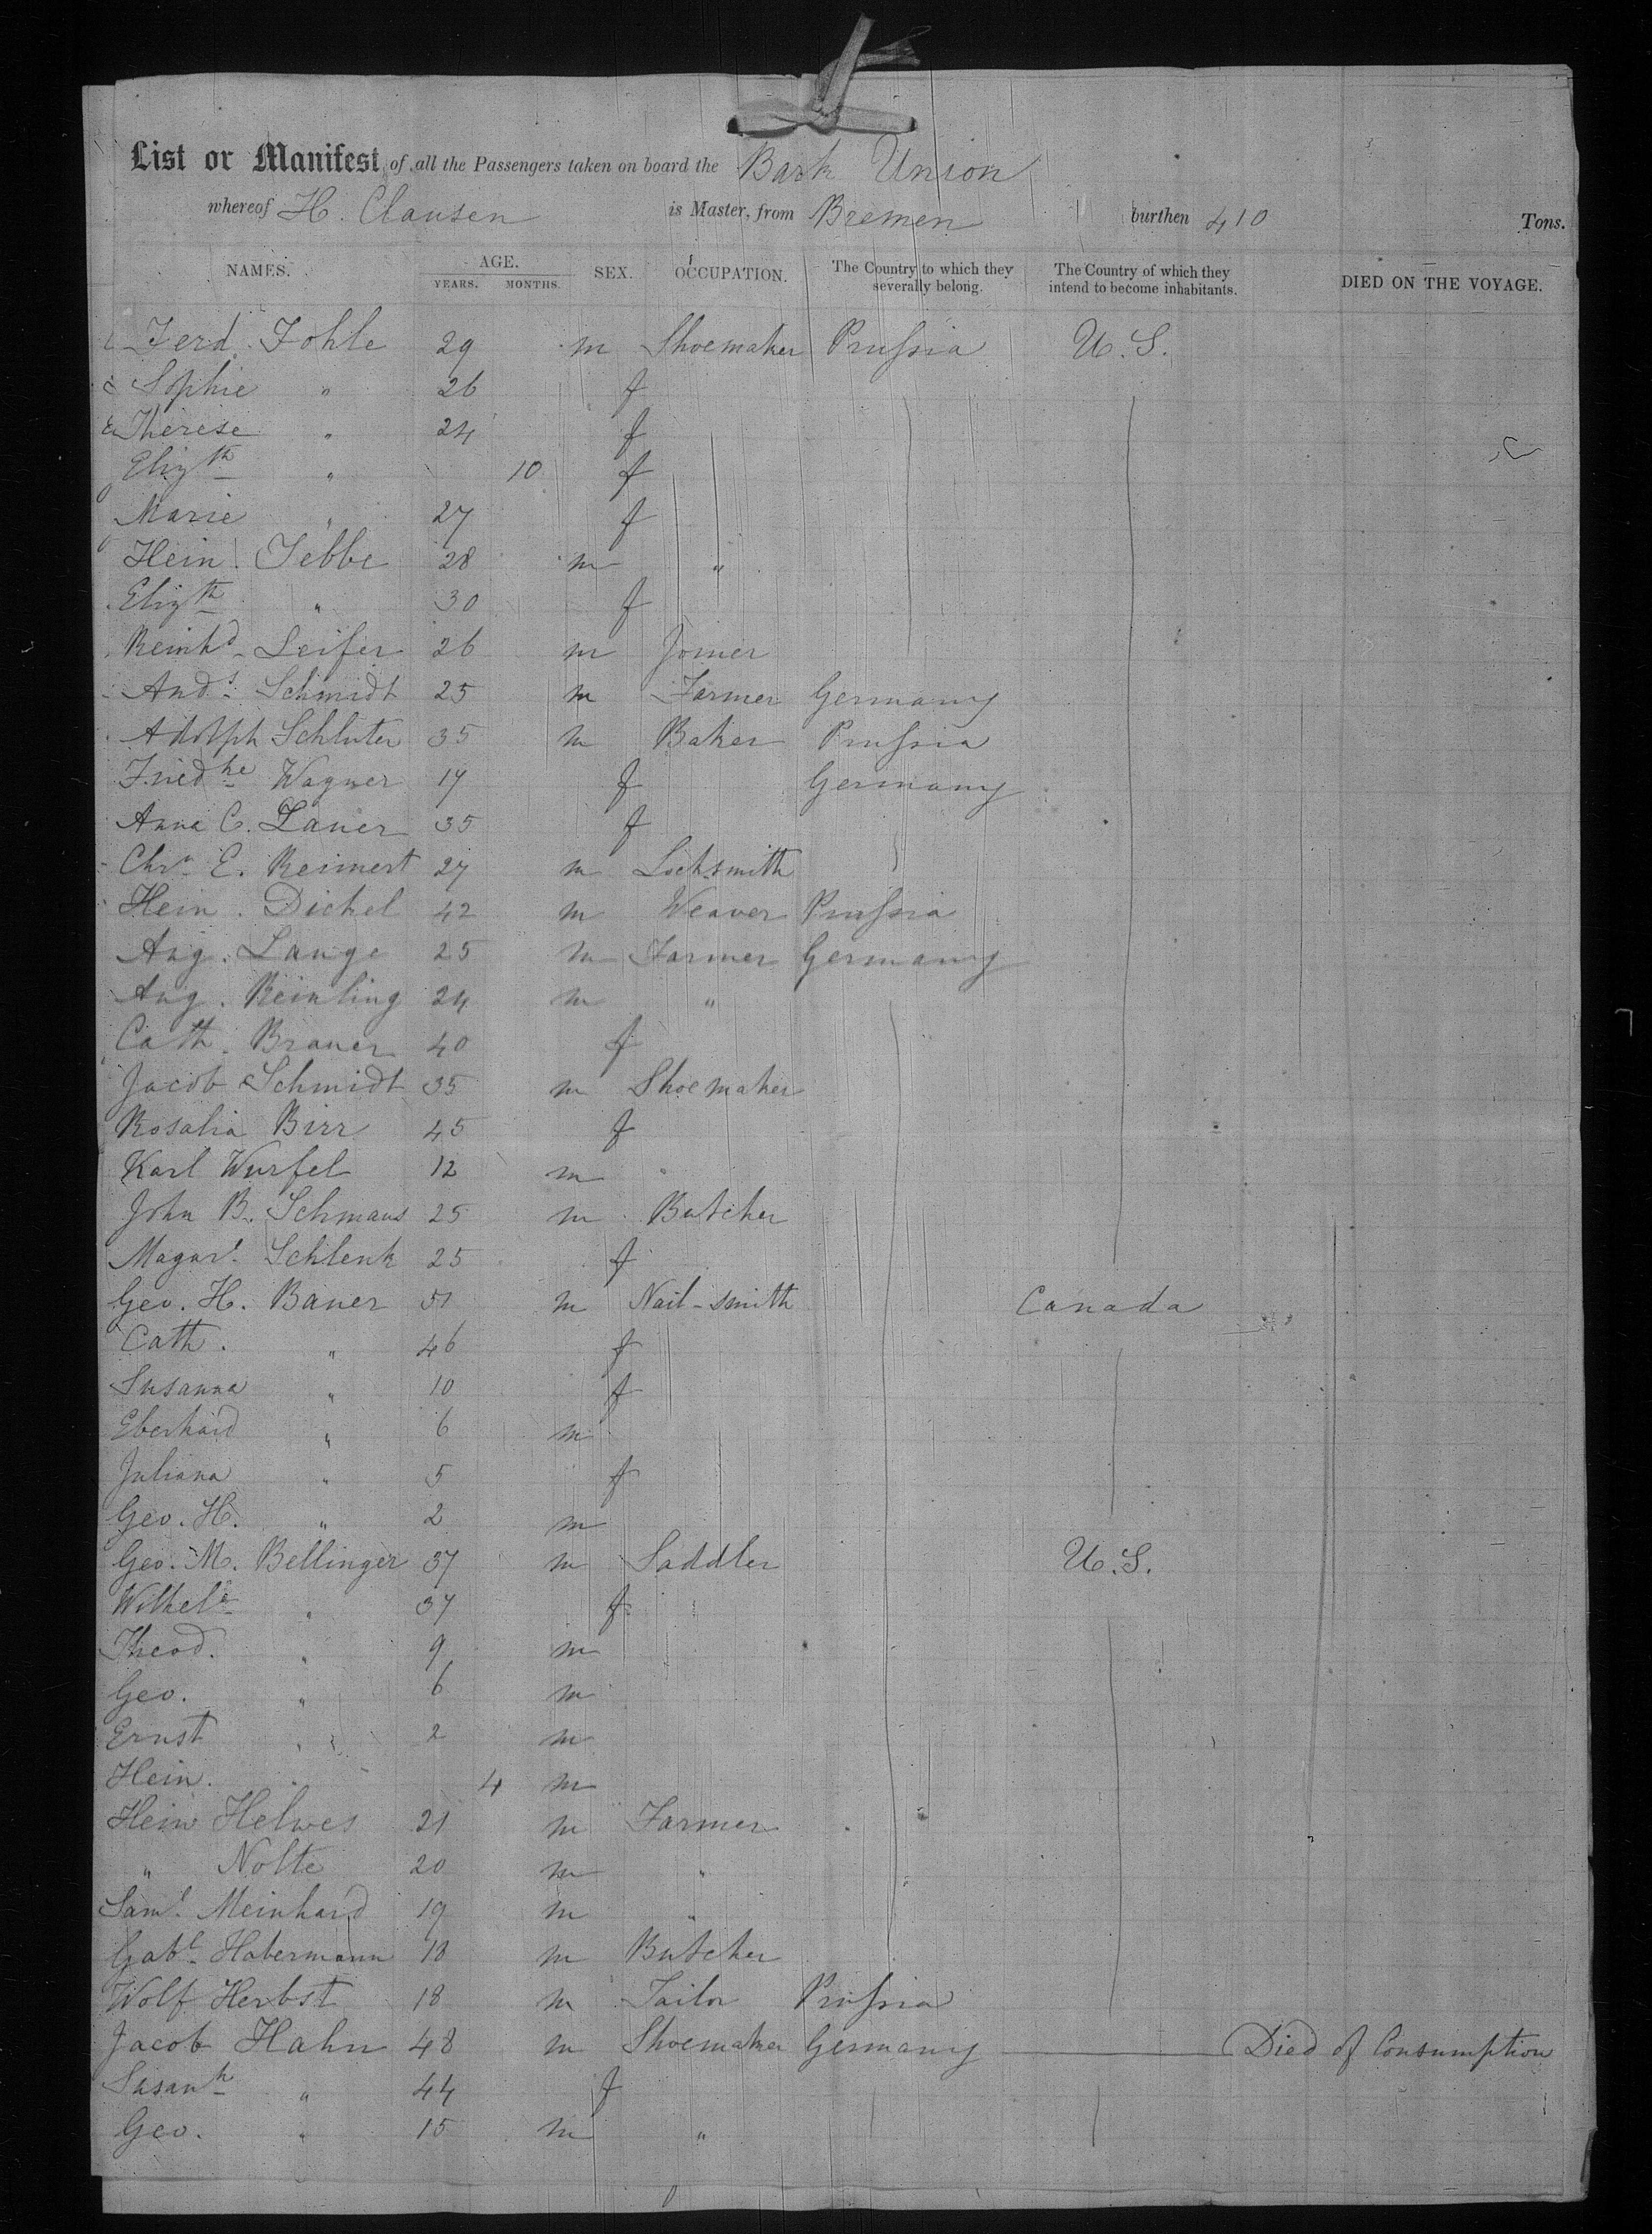 List or Manifest of all the Passengers taken on board the Bark Union
whereof H. Clausen is Master, from Bremen burthen 410 Tons.
NAMES. AGE. YEARS. MONTHS. SEX. OCCUPATION. The Country to which they severally belong. The Country of which they intend to become inhabitants. DIED ON THE VOYAGE.
Ferd. Fohle 29 m Shoemaker Prussia U.S.
Sophie " 26 f
Therese " 24 f
Elizth " 10 f
Marie " 27 f
Hein. Tebbe 28 m "
Elizth " 30 f
Reinhd Seifer 26 m Joiner
Ands Schmidt 25 m Farmer Germany
Adolph Schluter 35 m Baker Prussia
Friedke Wagner 17 f Germany
Anna C. Lauer 35 f
Chrn E. Reimert 27 m Locksmith
Hein. Dickel 42 m Weaver Prussia
Aug. Lange 25 m Farmer Germany
Aug. Reinling 24 m "
Cath. Brauer 40 f
Jacob Schmidt 35 m Shoemaker
Rosalia Birr 45 f
Karl Wurfel 12 m
John B. Schmaus 25 m Butcher
Magart Schlenk 25 f
Geo. H. Bauer 51 m Nail-smith Canada
Cath. " 46 f
Susanna " 10 f
Eberhard " 6 m
Juliana " 5 f
Geo. H. " 2 m
Geo. M. Bellinger 37 m Saddler U.S.
Wilhele " 37 f
Theod. " 9 m
Geo. " 6 m
Ernst " 2 m
Hein. " 4 m
Hein Helwes 21 m Farmer
" Nolte 20 m "
Saml Meinhard 19 m "
Gabl Habermann 18 m Butcher
Wolf Herbst 18 m Tailor Prussia
Jacob Hahn 48 m Shoemaker Germany Died of Consumption
Susanh " 44 f
Geo. " 15 m "